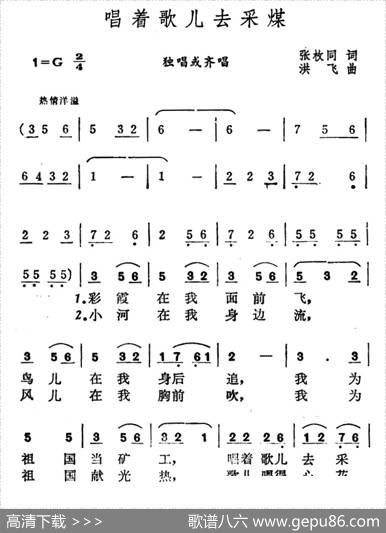 唱着歌儿去采煤
1=G 2/4 独唱或齐唱 张枚同 词
洪飞 曲
热情洋溢
(3 5 6 | 5 3 2 | 6 — | 6 — | 7 5 6 |
6 4 3 2 | 1 — | 1 — | 2 2 3 | 7 2 6 |
2 2 3 | 7 2 6 | 2 2 6 | 5 5 5 5 | 5 5 5 5 |
5 5 5 5) | 3 5 6 | 5 3 2 | 3 5 6 | 5 3 2 |
1.彩 霞 在 我 面 前 飞,
2.小 河 在 我 身 边 流,
3 5 6 | 5 3 2 | 1 7 6 1 | 2 — | 3 . 3 |
鸟 儿 在 我 身后 追, 我 为
风 儿 在 我 胸前 吹, 我 为
5 5 | 3 5 6 | 3 2 1 | 2 2 2 6 | 1 2 7 6 |
祖 国 当 矿 工, 唱着 歌儿 去 采
祖 国 献 光 热,
高清下载 >>> 歌谱八六 www.gepu86.com